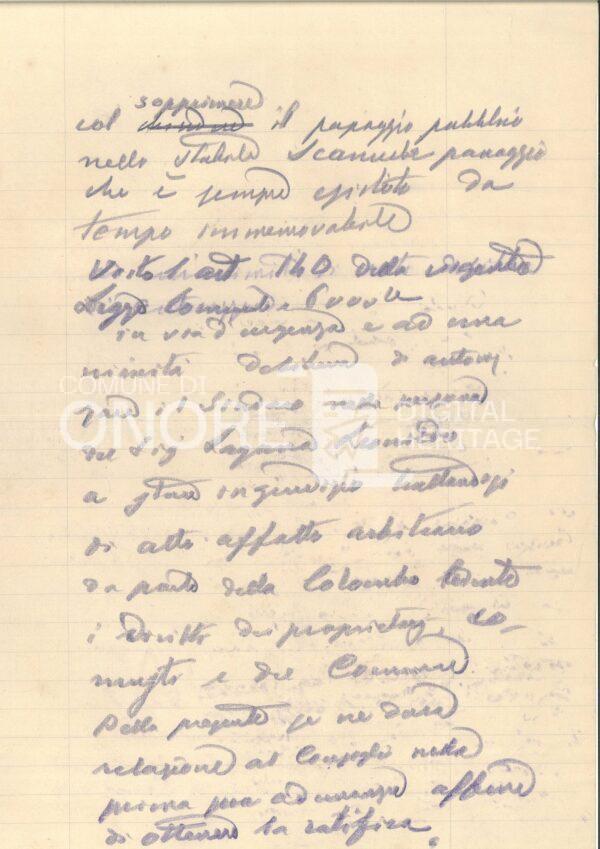 sopprimere
col il passaggio pubblico
nello stabile passaggio
che è sempre esistito da
tempo immemorabile
Visto l'art 140 della vigente
Legge Comunale e Prov.le
in via d'urgenza e ad una
nimità delibera di autoriz
zare il Sindaco nella persona
del Sig
a stare in giudizio trattandosi
di atto affatto arbitrario
da parte della Colombo ledente
i diritti dei proprietarj, co-
 e del Comune.
Della presente se ne darà
relazione al Consiglio nella
prima sua adunanza affine
di ottenere la ratifica.
COMUNE DI
ONORE
DIGITAL
HERITAGE